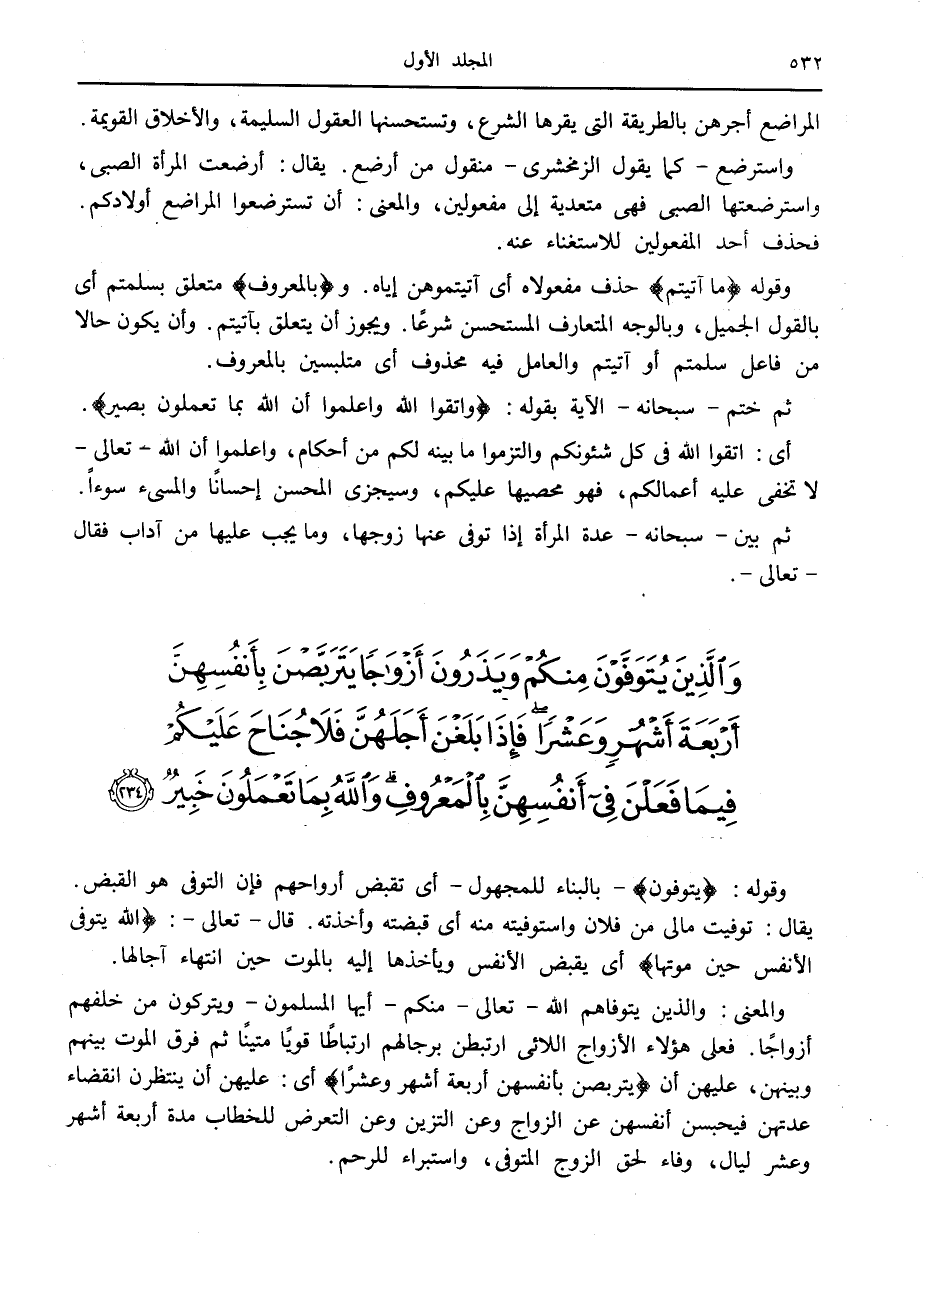 ٥٣٢ المجلد الأول
المراضع أجرهن بالطريقة التى يقرها الشرع، وتستحسنها العقول السليمة، والأخلاق القويمة.
واسترضع – كما يقول الزمخشرى – منقول من أرضع. يقال: أرضعت المرأة الصبى،
واسترضعتها الصبى فهى متعدية إلى مفعولين، والمعنى: أن تسترضعوا المراضع أولادكم.
فحذف أحد المفعولين للاستغناء عنه.
وقوله ﴿ما آتيتم﴾ حذف مفعولاه أى آتيتموهن إياه. و﴿بالمعروف﴾ متعلق بسلمتم أى
بالقول الجميل، وبالوجه المتعارف المستحسن شرعًا. ويجوز أن يتعلق بآتيتم. وأن يكون حالا
من فاعل سلمتم أو آتيتم والعامل فيه محذوف أى متلبسين بالمعروف.
ثم ختم – سبحانه – الآية بقوله: ﴿واتقوا الله واعلموا أن الله بما تعملون بصير﴾.
أى: اتقوا الله فى كل شئونكم والتزموا ما بينه لكم من أحكام، واعلموا أن الله – تعالى –
لا تخفى عليه أعمالكم، فهو محصيها عليكم، وسيجزى المحسن إحسانًا والمسىء سوءاً.
ثم بين – سبحانه – عدة المرأة إذا توفى عنها زوجها، وما يجب عليها من آداب فقال
– تعالى –.
وَٱلَّذِينَ يُتَوَفَّوْنَ مِنكُمْ وَيَذَرُونَ أَزْوَٰجًا يَتَرَبَّصْنَ بِأَنفُسِهِنَّ
أَرْبَعَةَ أَشْهُرٍ وَعَشْرًا ۖ فَإِذَا بَلَغْنَ أَجَلَهُنَّ فَلَا جُنَاحَ عَلَيْكُمْ
فِيمَا فَعَلْنَ فِىٓ أَنفُسِهِنَّ بِٱلْمَعْرُوفِ ۗ وَٱللَّهُ بِمَا تَعْمَلُونَ خَبِيرٌ ﴿٢٣٤﴾
وقوله: ﴿يتوفون﴾ – بالبناء للمجهول – أى تقبض أرواحهم فإن التوفى هو القبض.
يقال: توفيت مالى من فلان واستوفيته منه أى قبضته وأخذته. قال – تعالى –: ﴿الله يتوفى
الأنفس حين موتها﴾ أى يقبض الأنفس ويأخذها إليه بالموت حين انتهاء آجالها.
والمعنى: والذين يتوفاهم الله – تعالى – منكم – أيها المسلمون – ويتركون من خلفهم
أزواجًا. فعلى هؤلاء الأزواج اللائى ارتبطن برجالهم ارتباطًا قويًا متينًا ثم فرق الموت بينهم
وبينهن، عليهن أن ﴿يتربصن بأنفسهن أربعة أشهر وعشرًا﴾ أى: عليهن أن ينتظرن انقضاء
عدتهن فيحبسن أنفسهن عن الزواج وعن التزين وعن التعرض للخطاب مدة أربعة أشهر
وعشر ليال، وفاء لحق الزوج المتوفى، واستبراء للرحم.